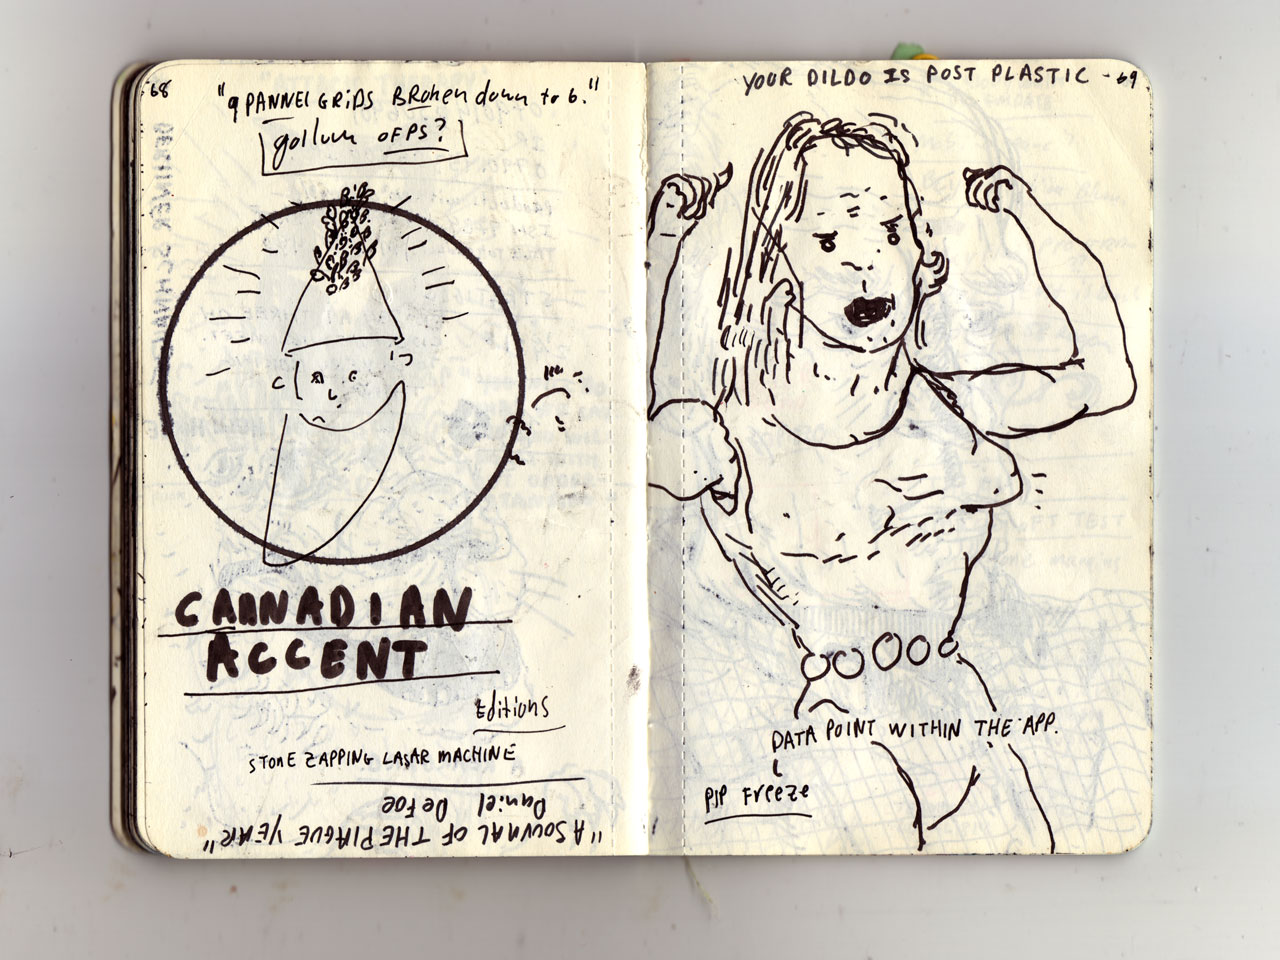 68
"9 PANNEL GRiDS BRoken down to 6."
gollum OFPS?
CANNADIAN
ACCENT
Editions
STONE ZAPPING LASAR MACHINE
Daniel DeFoe
"A JOURNAL OF THE PLAGUE YEAR"
YOUR DILDO IS POST PLASTIC - 69
DATA POINT WITHIN THE APP.
PIP Freeze